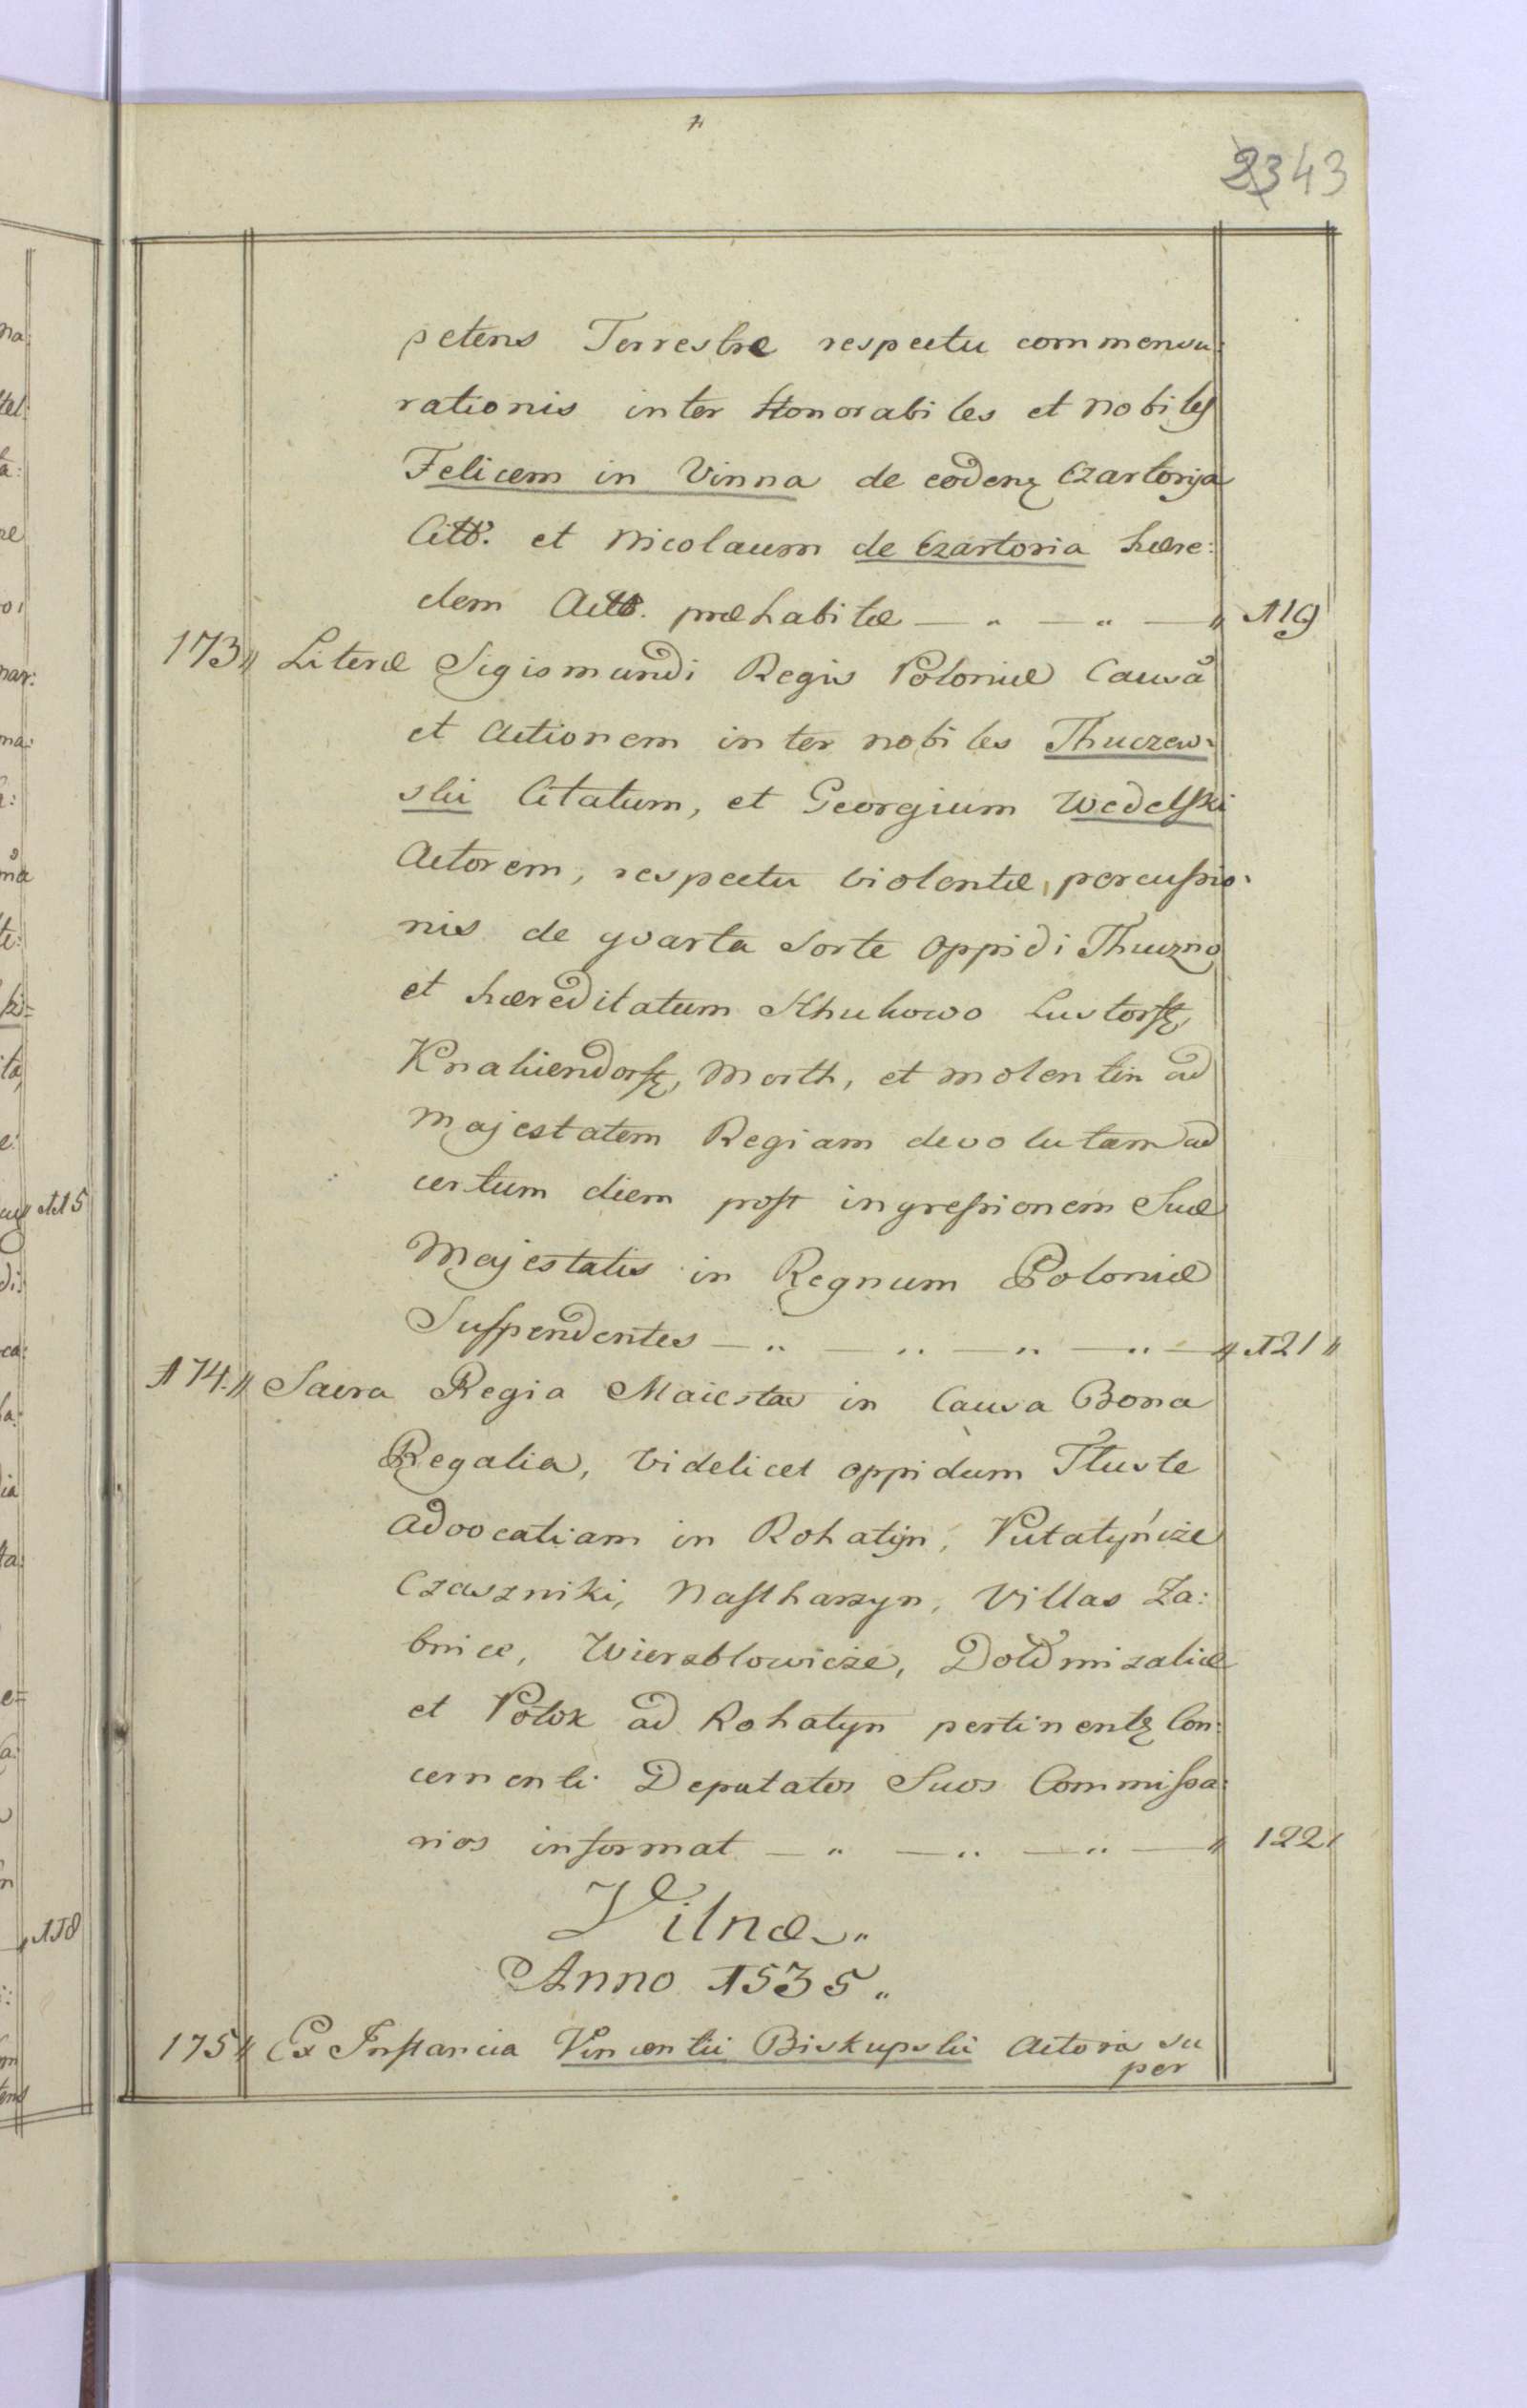 2343
petens Terrestræ respectu commensu:
rationis inter Honorabiles et Nobiles
Felicem in Vinna de eodem Czartorija
Citt. et Nicolaum de Czartoria hære:
dem Actt. præhabitæ — „ — „ — „ 119
173 „ Literæ Sigismundi Regis Poloniæ Causã
et Actionem inter nobiles Thuczew:
ski Citatum, et Georgium Wedelski
Actorem, respectu violentæ percussio:
nis de qvarta Sorte Oppidi Thuczno
et hæreditatum Sthuhowo Lustorff,
Knakiendorff, Marth, et Molentin ad
Majestatem Regiam devolutam ad
certum diem post ingressionem Suæ
Majestatis in Regnum Poloniæ
Suspendentes — „ — „ — „ — „ — „ 121 „
174. „ Sacra Regia Maiestas in Causa Bona
Regalia, videlicet oppidum Tłuste
Advocatiam in Rohatijn, Putatyńcze
Czaszniki, Nastharzyn, Villas Za:
bnice, Wierzblowicze, Dołdmizalicæ
et Potok ad Rohatyn pertinentę Con:
cernenti Deputatos Suos Commissa:
rios informat — „ — „ — „ — „ 122 „
Vilnæ „
Anno 1535 „
175 „ Ex Instancia Vincentii Biskupski Actoris su
per
115
118